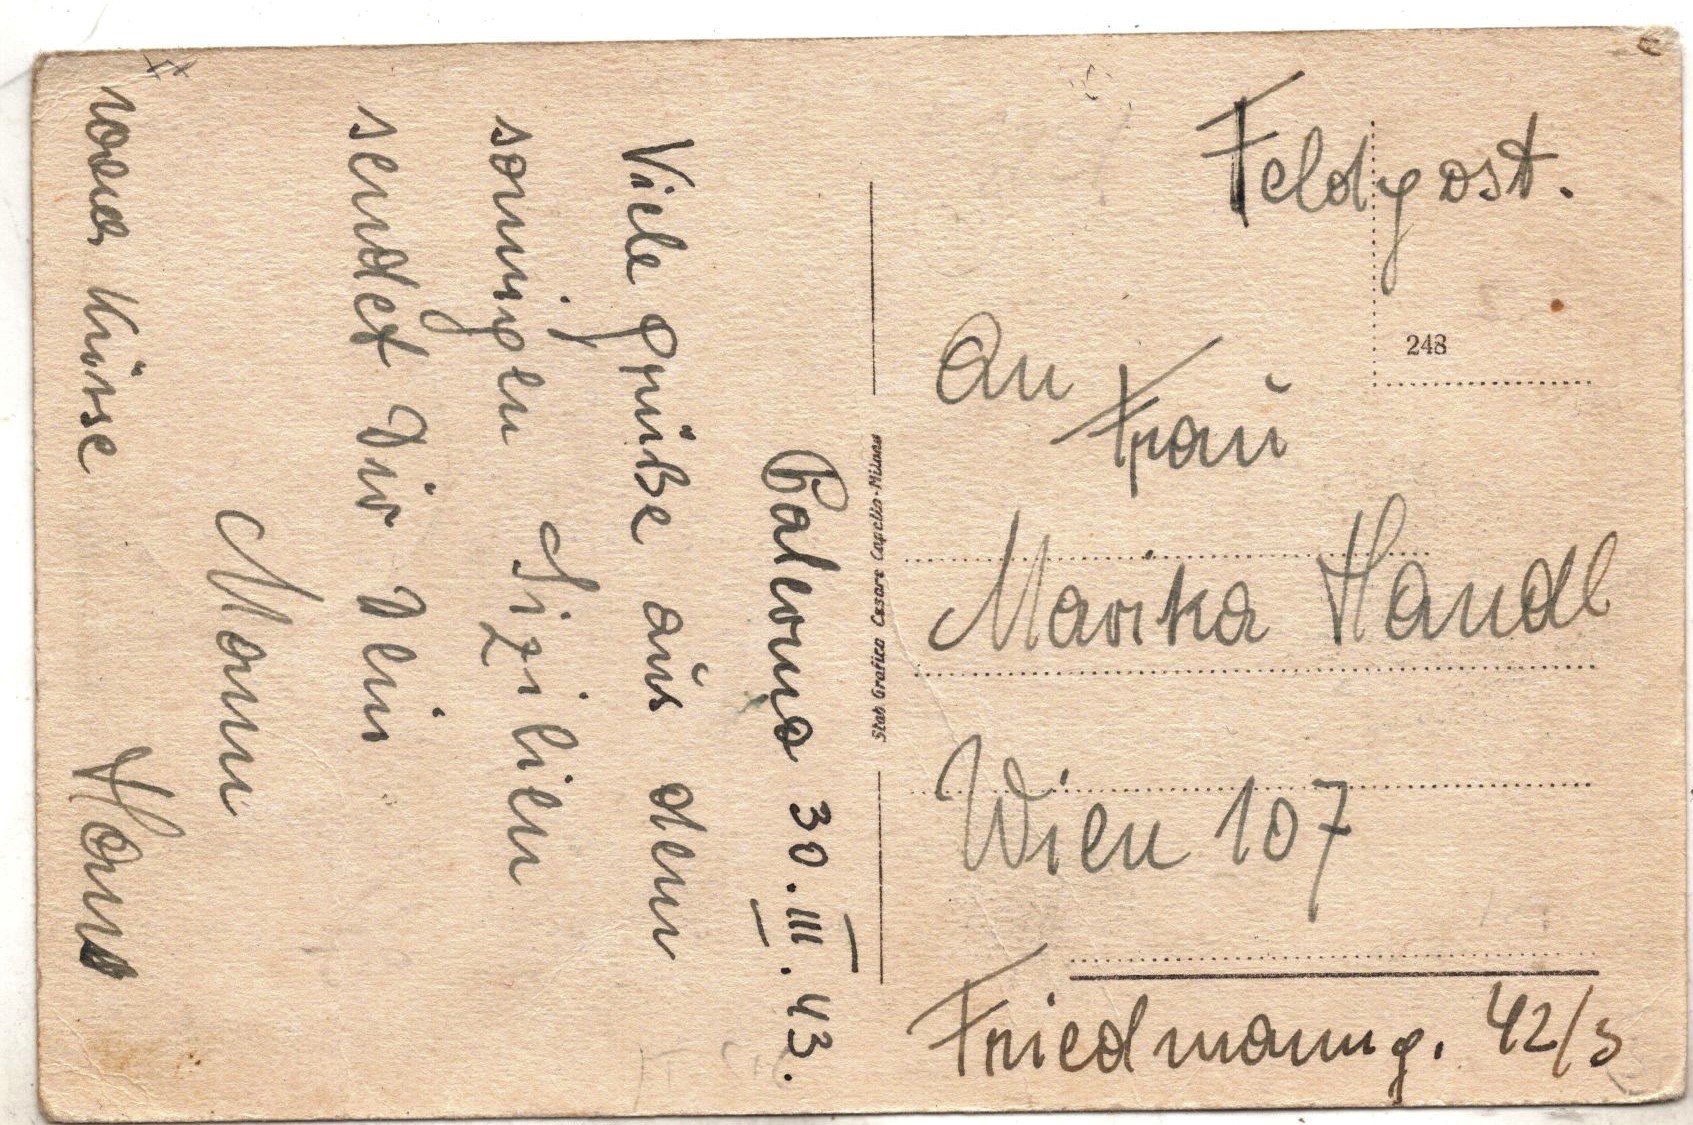 Palermo 30.III.43.
Viele Grüße aus dem
sonnigen Sizilien
sendet Dir Dein
Mann
Küsse Hans
Stab Grafico Cesare Capello-Milano
Feldpost.
248
An
Frau
Marika Handl
Wien 107
Friedmanng. 42/3